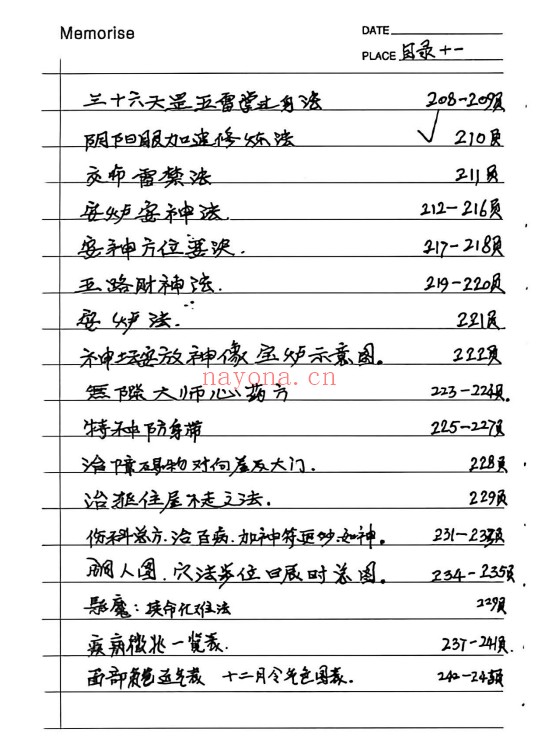 Memorise
DATE
PLACE 目录十一
三十六天罡五雷掌上身法 208-209页
阴阳眼加速修炼法 ✓ 210页
交布雷禁法 211页
安炉安神法. 212-216页
安神方位要决. 217-218页
五路财神法. 219-220页
安炉法. 221页
神坛安放神像宝炉示意图。 222页
nayona.cn
大师心药方 223-224页.
特种防身带 225-227页
治障碍物对向屋及大门. 228页
治抵住屋不走之法. 229页
伤科总方.治百病.加神符更妙如神。 231-233页
铜人图.穴法 位日辰时总图. 234-235页
魔: 命化难法 229页
疾病征兆一览表. 237-241页.
面部 气表 十二月令气色图表. 242-245页